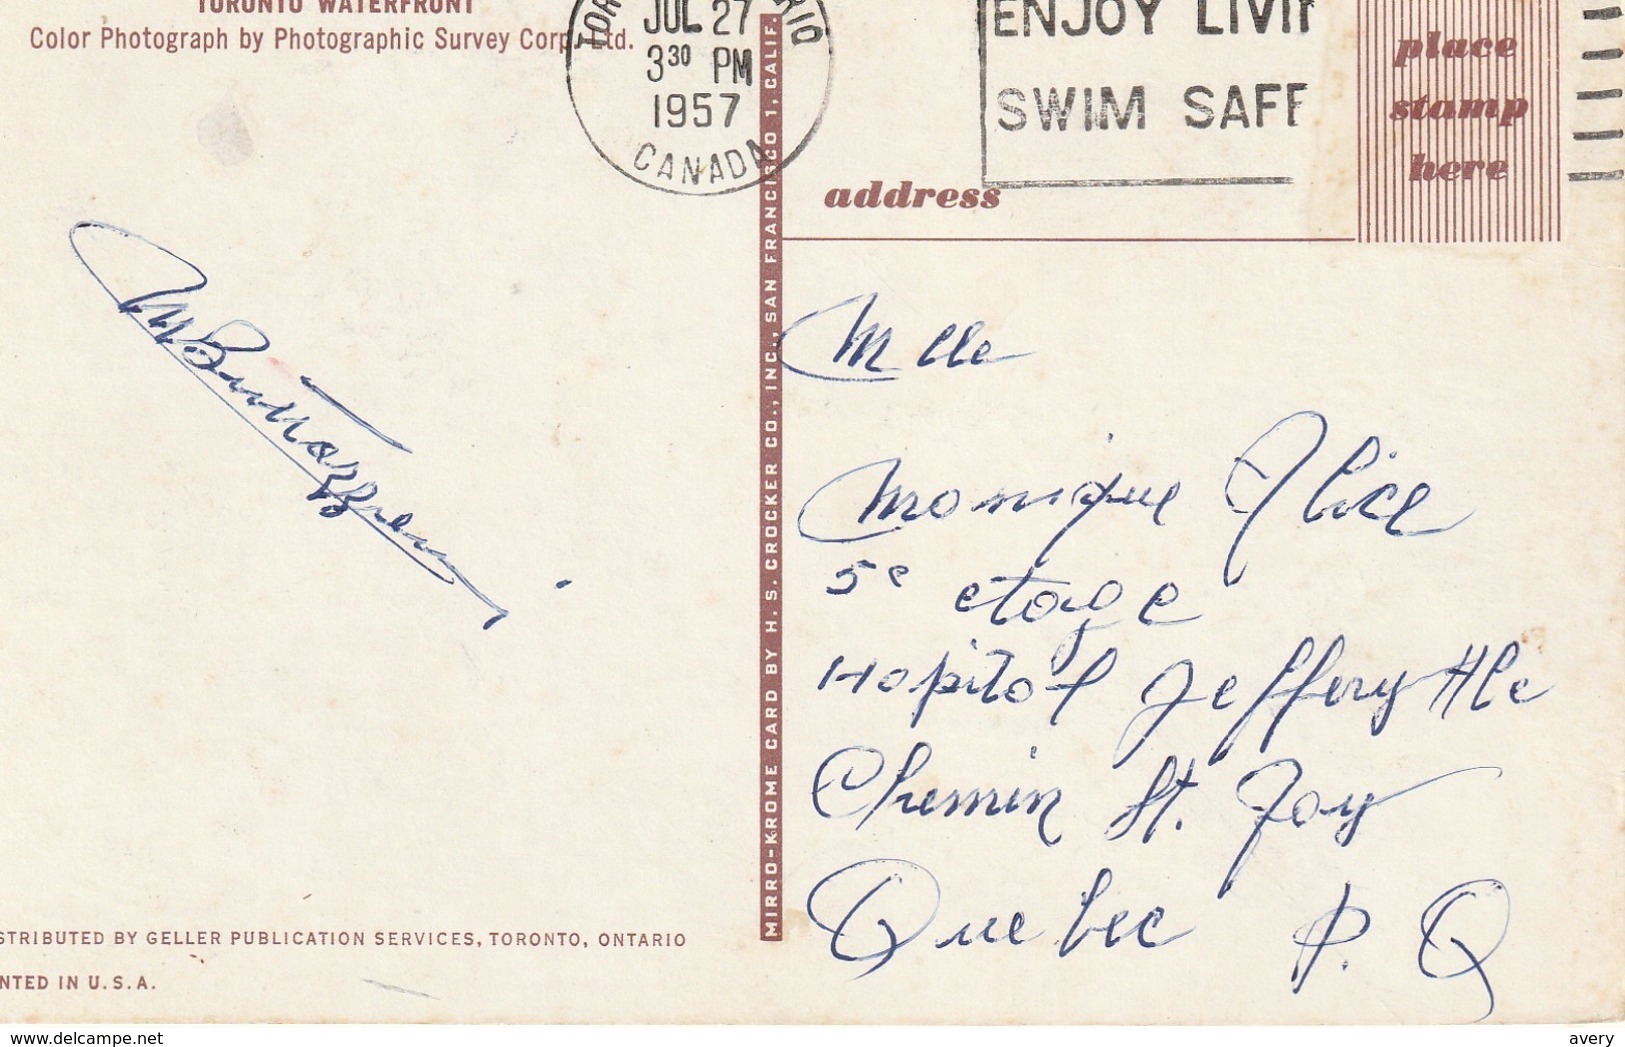 TORONTO WATERFRONT
Color Photograph by Photographic Survey Corp. Ltd.
JUL 27
3 30 PM
1957
CANADA
ENJOY LIVI
SWIM SAFE
place
stamp
here
address
MIRRO-KROME CARD BY H. S. CROCKER CO., INC., SAN FRANCISCO 1, CALIF.
Mlle
Monique Alice
5e etage
Hopital Jeffery Hle
Chemin St. Foy
Quebec P. Q
STRIBUTED BY GELLER PUBLICATION SERVICES, TORONTO, ONTARIO
NTED IN U.S.A.
www.delcampe.net
avery